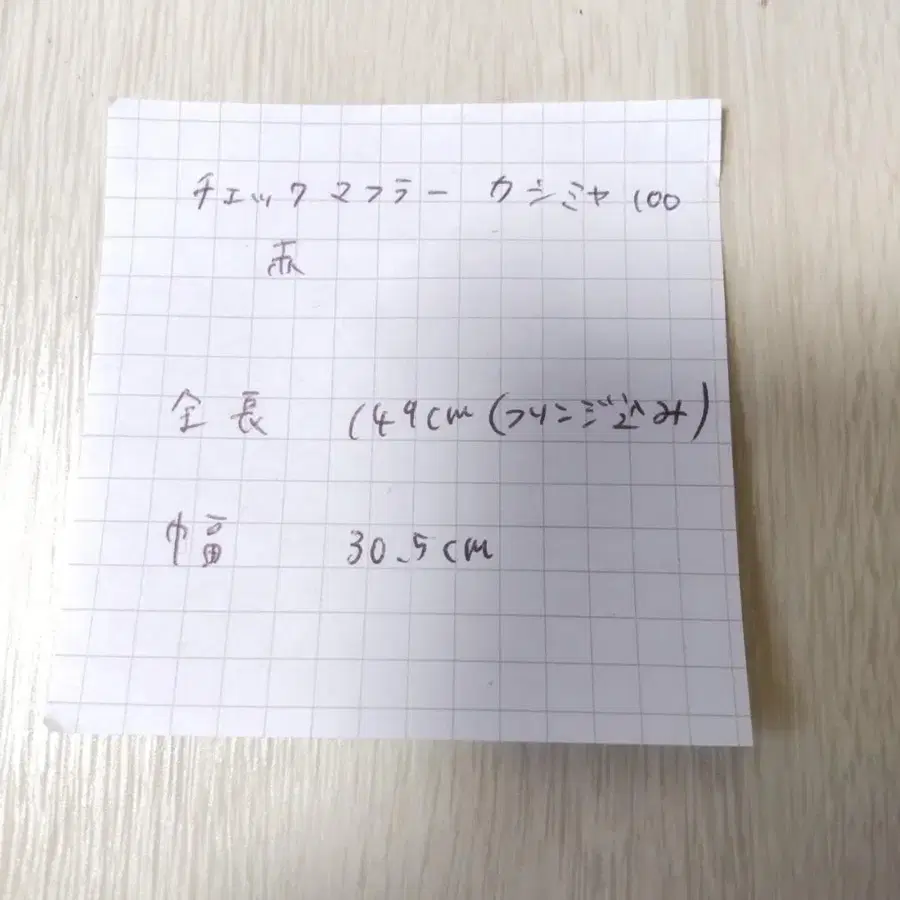 チェックマフラー カシミヤ100
赤
全長 149cm (フリンジ込み)
巾畐 30.5cm